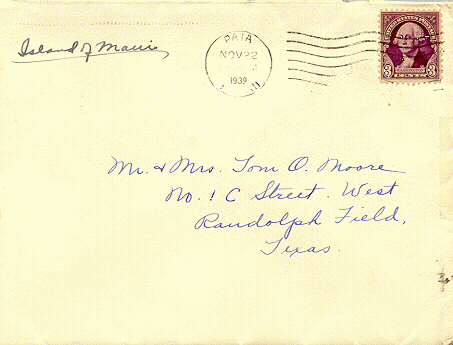 Island of Maui
PAIA
NOV 22
1939
UNITED STATES POSTAGE
3 CENTS 3
Mr. & Mrs. Tom O. Moore
No. 1 C Street. West
Randolph Field,
Texas.